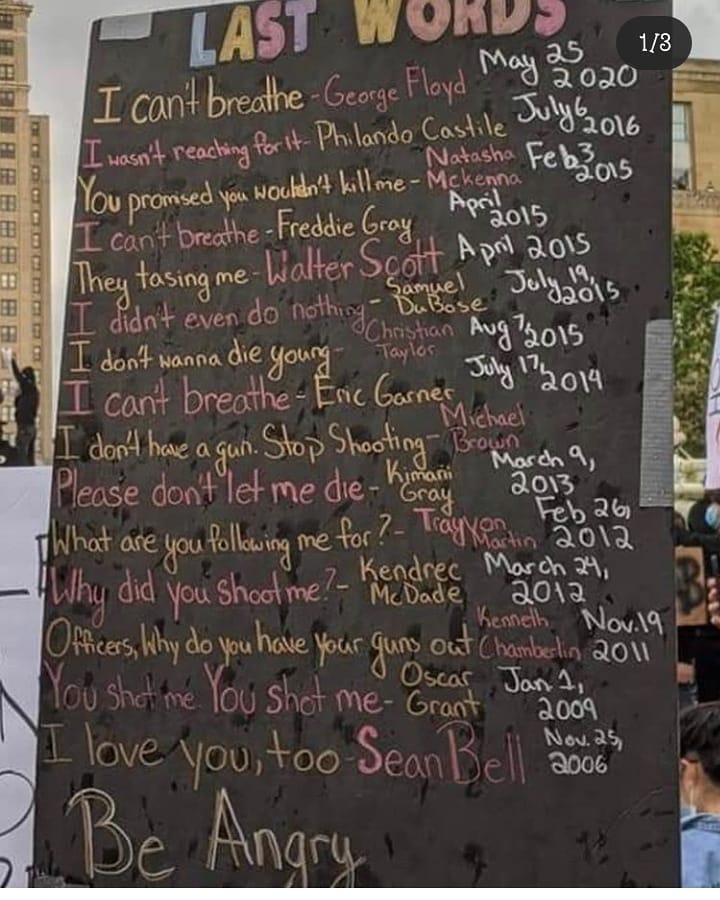 1/3
LAST WORDS
I can't breathe - George Floyd May 25 2020
I wasn't reaching for it - Philando Castile July 6 2016
You promised you wouldn't kill me - Natasha Mckenna Feb 3 2015
I can't breathe - Freddie Gray April 2015
They tasing me - Walter Scott April 2015
I didn't even do nothing - Samuel DuBose July 19, 2015
I don't wanna die young - Christian Taylor Aug 7, 2015
I can't breathe - Eric Garner July 17, 2014
I don't have a gun. Stop Shooting - Michael Brown
Please don't let me die - Kimani Gray March 9, 2013
What are you following me for? - Trayvon Martin Feb 26, 2012
Why did you shoot me? - Kendrec McDade March 24, 2012
Officers, Why do you have your guns out Kenneth Chamberlin Nov. 19 2011
You shot me You shot me - Oscar Grant Jan 1, 2009
I love you, too - Sean Bell Nov. 25, 2006
Be Angry